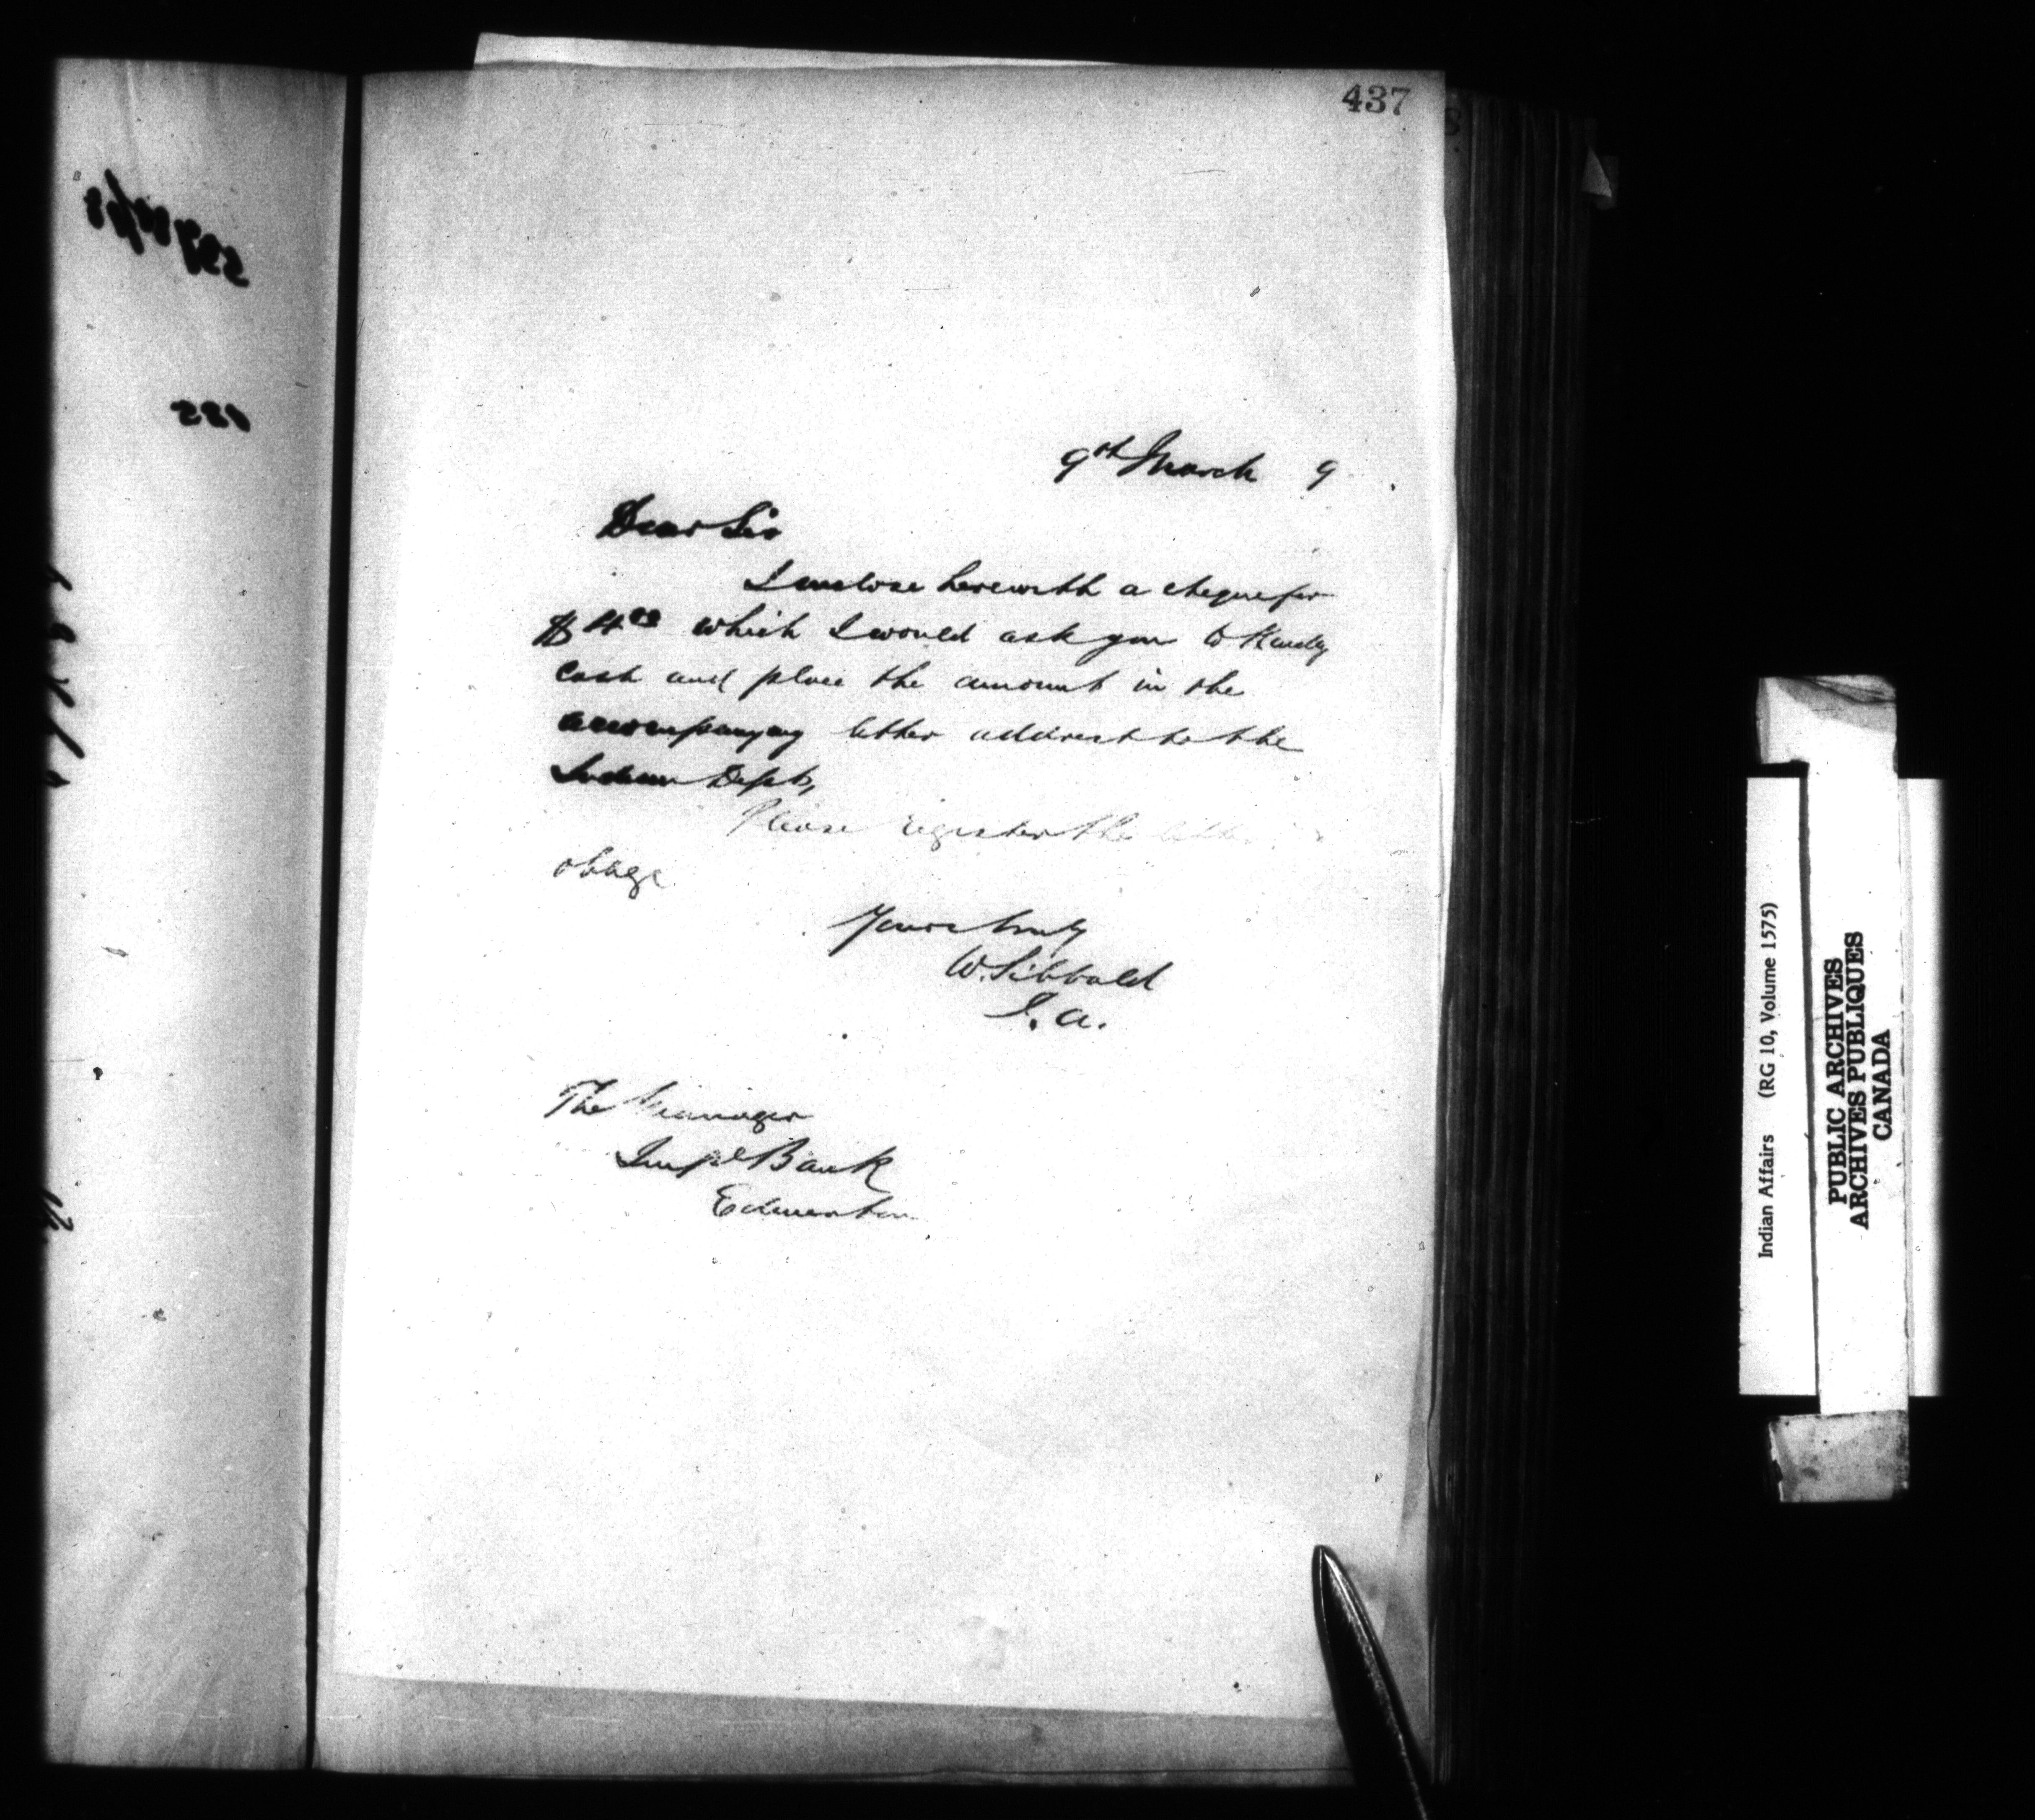 437
9th March 9
Dear Sir
I enclose herewith a cheque for
$4.00 which I would ask you to Kindly
cash and place the amount in the
accompanying letter addrest to the
Indian Dept,
Please register the letter
oblige
Yours truly
W. Sibbald
I. A.
The Manager
Impl Bank
Edmonton
Indian Affairs (RG 10, Volume 1575)
PUBLIC ARCHIVES
ARCHIVES PUBLIQUES
CANADA